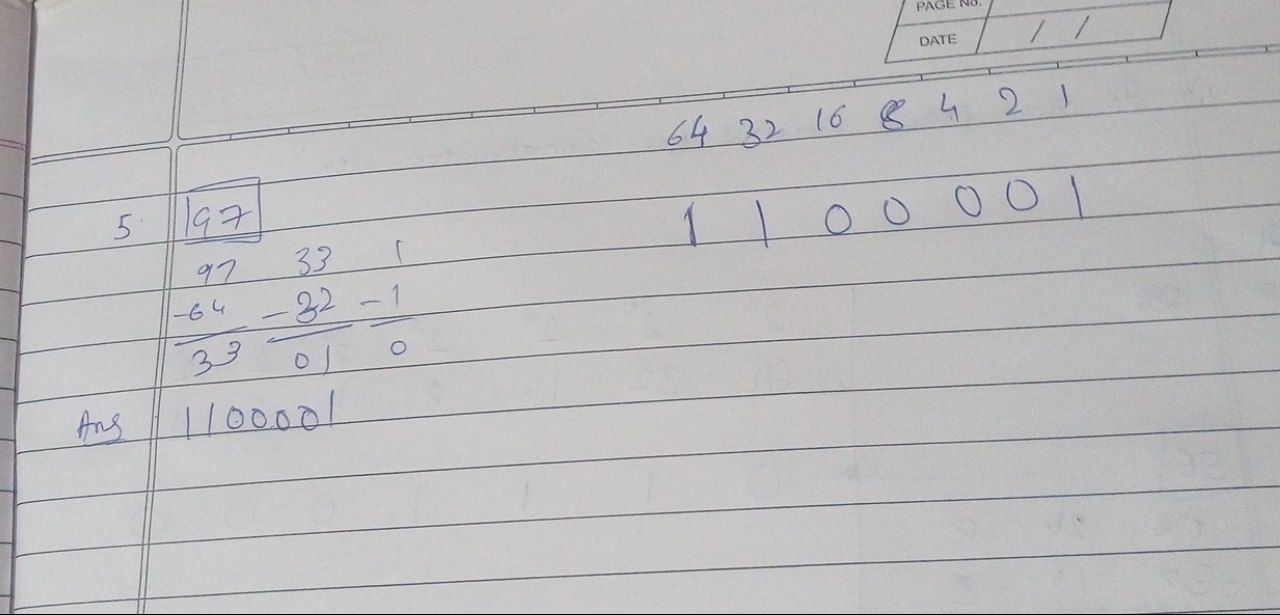 PAGE No.
DATE / /
64 32 16 8 4 2 1
5. 97 1 1 0 0 0 0 1
97 33 1
-64 -32 -1
33 01 0
Ans 1100001